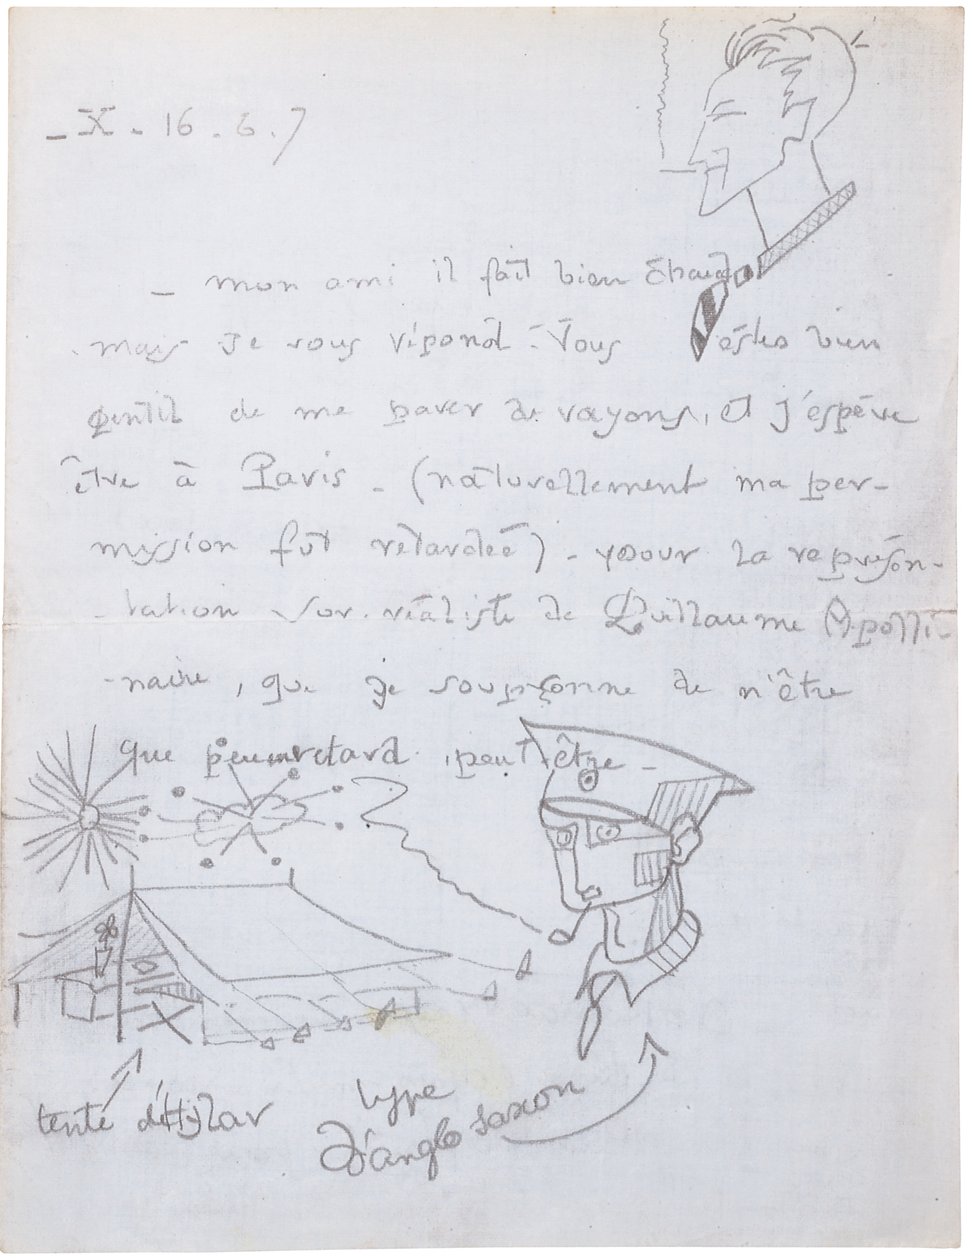 _ X. 16.6.7
_ mon ami il fait bien chaud
mais je vous répond - Vous êstes bien
gentil de me parer de rayons, et j'espère
être à Paris _ (naturellement ma per-
mission fut retardée) - pour la représen-
-tation sur-réaliste de Guillaume Apolli-
-naire, que je soupçonne de n'être
que retard peut être _
tente
type
D'anglo saxon